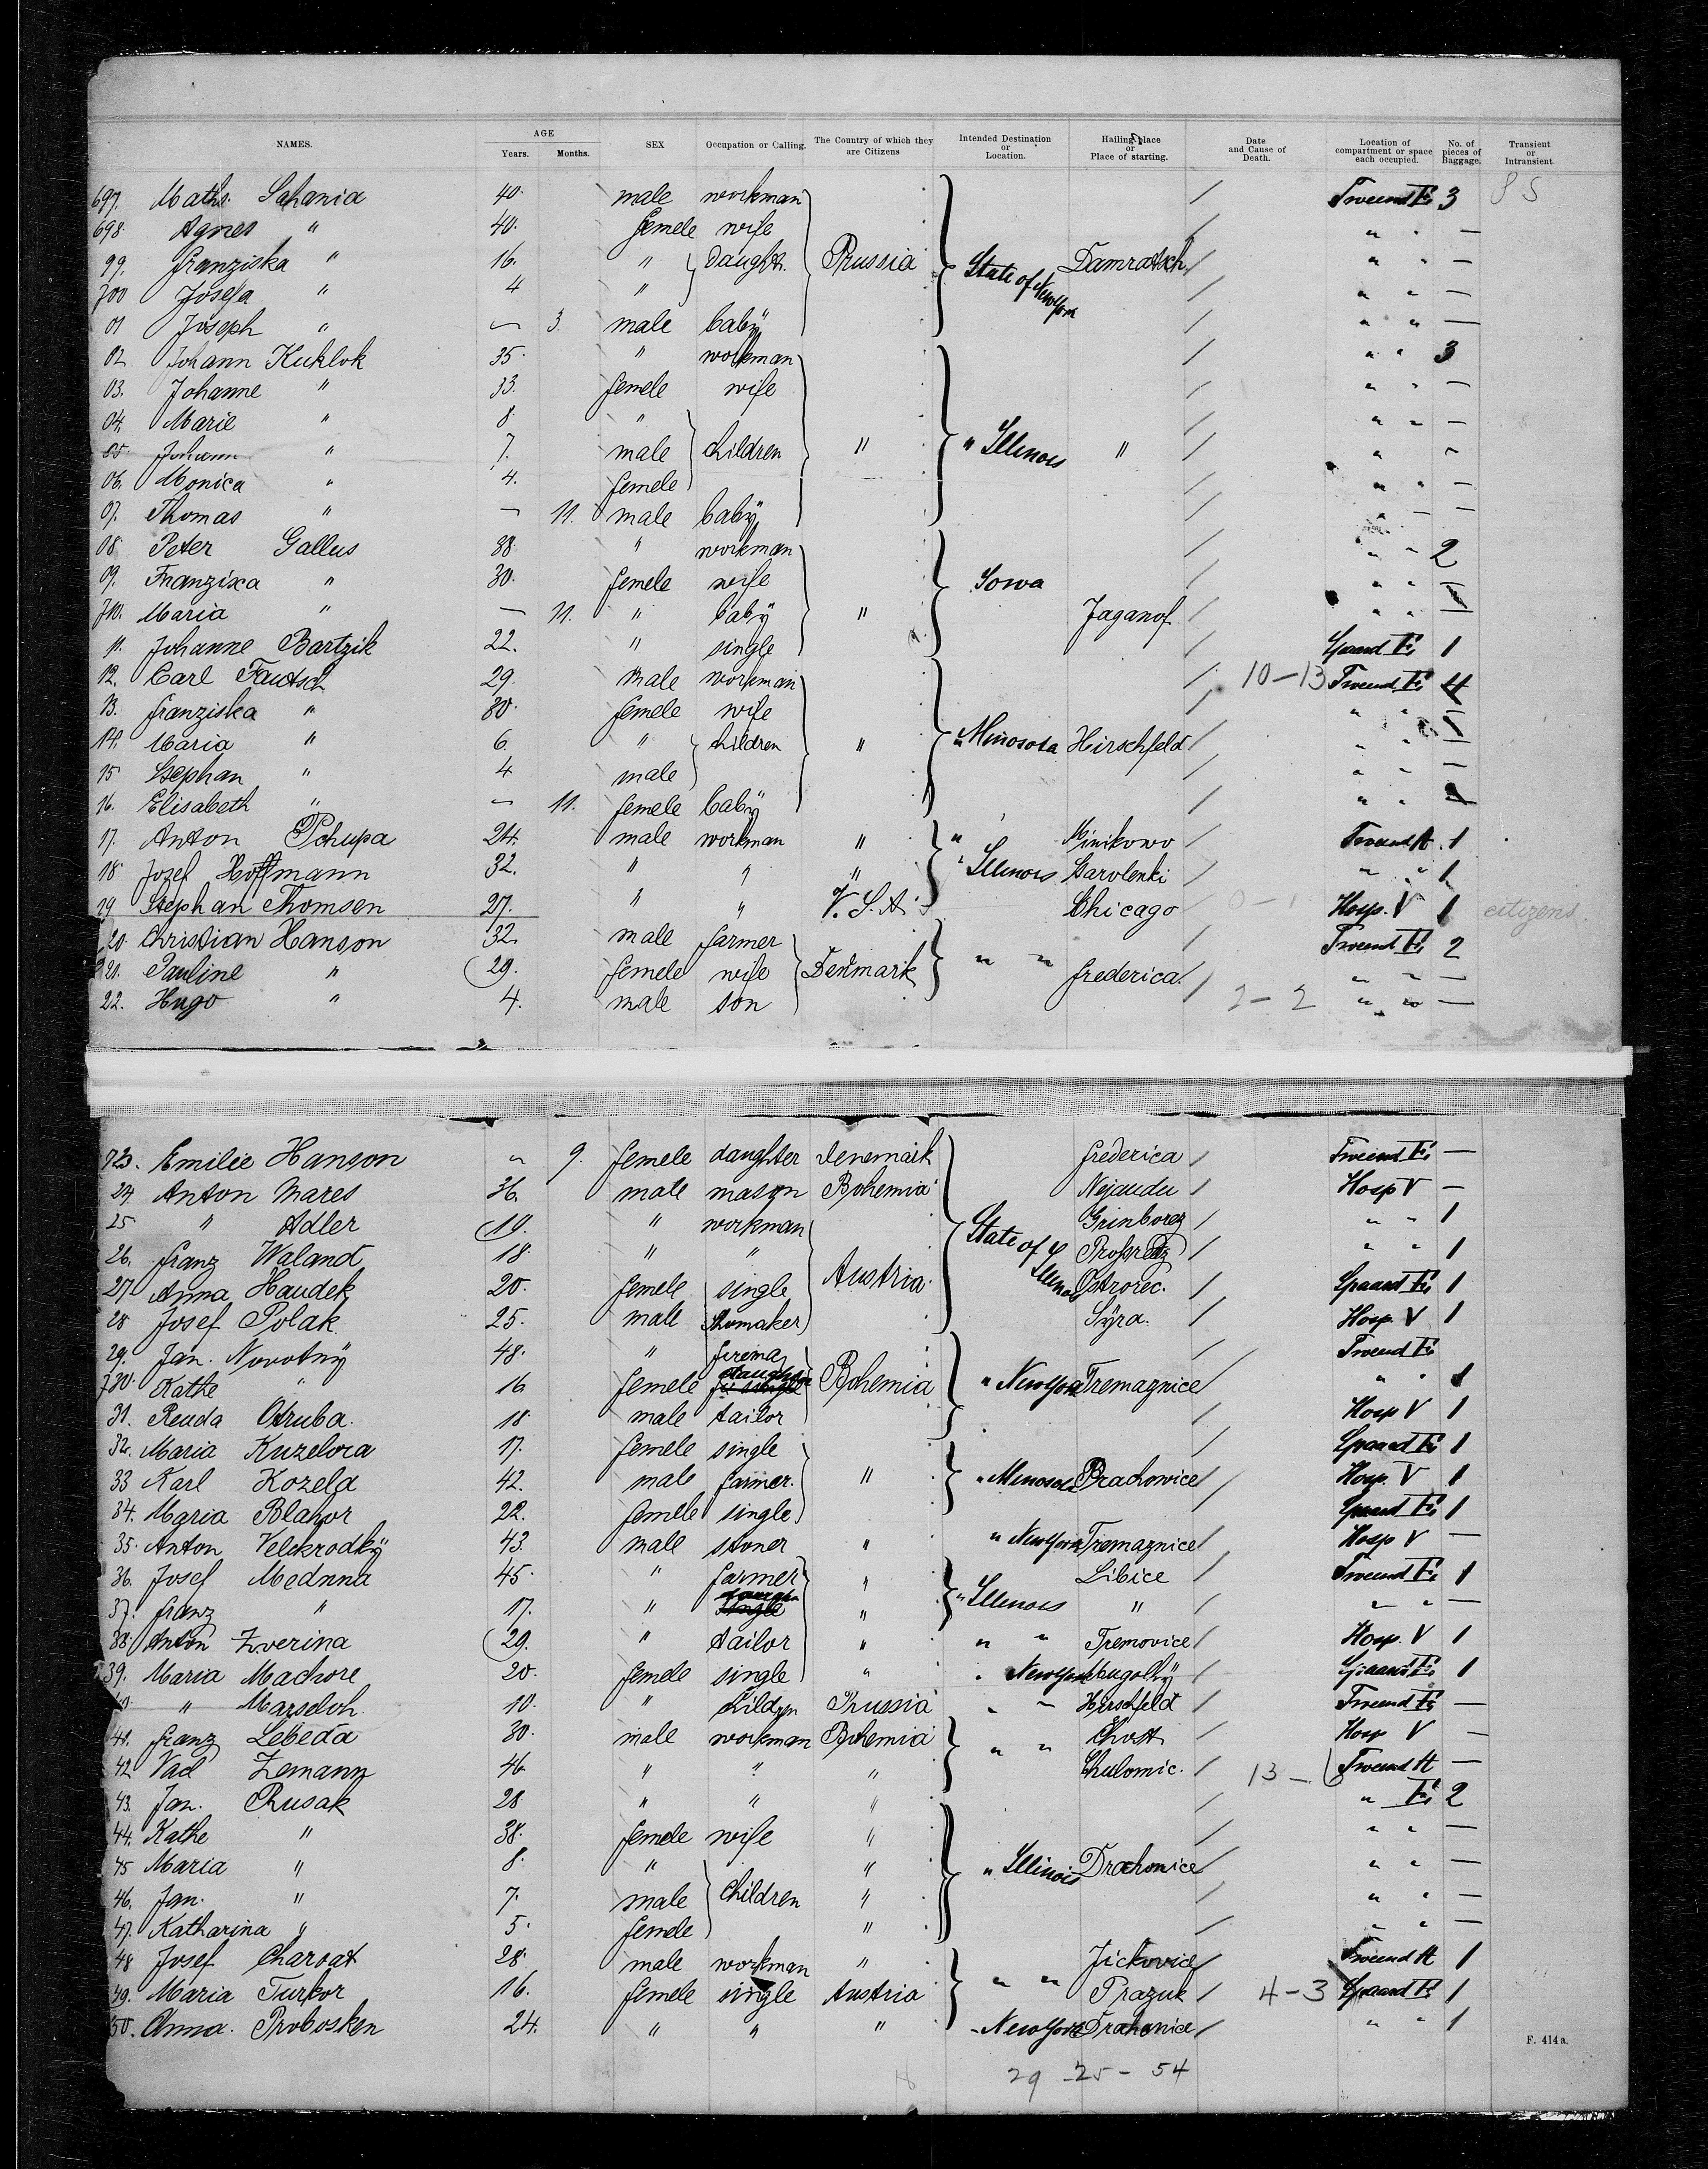 NAMES. AGE Years. Months. SEX Occupation or Calling. The Country of which they are Citizens Intended Destination or Location. Hailing place or Place of starting. Date and Cause of Death. Location of compartment or space each occupied. No. of pieces of Baggage. Transient or Intransient.
697. Maths. Sahania 40. male workman 3 8 5
698. Agnes " 40. femele wife " " —
99. Franziska " 16. " daught. Prussia State of New York Damratsch " " —
700 Josefa " 4 " " " —
01 Joseph " — 3. male baby " " —
02 Johann Kuklok 35. " workman " " 3
03. Johanne " 33. femele wife " " —
04. Marie " 8. " " " —
05. Johann " 7. male children " " Illinois " " "
06. Monica " 4. femele " " —
07. Thomas " — 11. male baby " — —
08. Peter Gallus 38. " workman " " 2
09. Franzixa " 30. femele wife Iowa " "
710. Maria " — 11. " baby " Jaganof " " —
11. Johanne Bartzik 22. " single 1
12. Carl Fautsch 29. male workman 10-13 4
13. Franziska " 30. femele wife " "
14. Maria " 6. " children " " Minosota Hirschfeld " " —
15 Stephan " 4 male " " —
16. Elisabeth " — 11. femele baby " "
17. Anton Pchupa 24. male workman " " 1
18. Jozef Hoffmann 32. " " " " Illinois " " 1
19 Stephan Thomsen 27. " " V. S. A. Chicago Hosp. V 1 citizens
20. Christian Hanson 32. male farmer 2
21. Pauline " 29. femele wife Denmark " " Frederica. " " —
22. Hugo " 4. male son 2-2 " " —
723. Emilie Hanson " 9. femele daughter Denemark Frederica —
24 Anton Mares 36. male mason Bohemia Hosp V —
25 " Adler 19. " workman Grinborez " " 1
26. Franz Waland 18. " " State of Illinois " " 1
27 Anna Haudek 20. femele single Austria. Ostrorec. 1
28 Josef Polak 25. male shomaker Syra. Hosp. V 1
29. Jan. Novotny 48. "
730. Kathe " 16 femele daughter Bohemia " New York Tremaznice " " 1
31. Renda Otruba. 18. male tailor Hosp V 1
32. Maria Kuzelova 17. femele single 1
33 Karl Kozela 42. male farmer. " " Minosota Drachowice Hosp. V 1
34. Maria Blahor 22. femele single 1
35. Anton Velekrodky 43. male stoner " " New York Tremaznice Hosp V —
36. Josef Mednna 45. " farmer " Libice 1
37. Franz " 17. " " " Illinois " " " —
38. Anton Zverina 29. " tailor " " " Tremovice Hosp. V 1
39. Maria Machore 20. femele single " " New York 1
40. " Marsdoh 10. " childern Prussia " " Hirschfeld —
41. Franz Lebeda 30. male workman Bohemia " " Chost Hosp V —
42 Vacl Zemann 46 " " " Chulomic. 13 - 6 —
43. Jan. Rusak 28 " " " " 2
44. Kathe " 38. femele wife " " " —
45 Maria " 8. " " " Illinois Drahonice " " —
46. Jan. " 7. male children " " " —
47. Katharina " 5. femele " " " —
48 Josef Charvat 28. male workman " " " Jickovice 1
49. Maria Turkor 16. femele single Austria Prazuk 4-3 1
50. Anna. Probosken 24. " " " " New York Drahonice " " 1
F. 414 a.
29 - 25 - 54